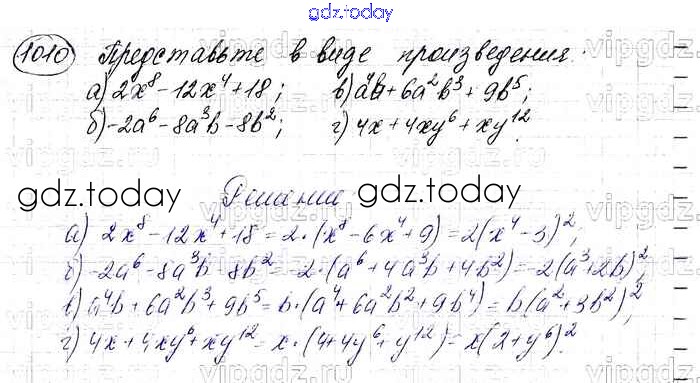 gdz.today
1010 Представьте в виде произведения:
а) 2x⁸ - 12x⁴ + 18; в) a⁴b + 6a²b³ + 9b⁵;
б) -2a⁶ - 8a³b - 8b²; г) 4x + 4xy⁶ + xy¹²
gdz.today Решение gdz.today
а) 2x⁸ - 12x⁴ + 18 = 2·(x⁸ - 6x⁴ + 9) = 2(x⁴ - 3)²;
б) -2a⁶ - 8a³b - 8b² = -2·(a⁶ + 4a³b + 4b²) = -2(a³ + 2b)²;
в) a⁴b + 6a²b³ + 9b⁵ = b·(a⁴ + 6a²b² + 9b⁴) = b(a² + 3b²)²;
г) 4x + 4xy⁶ + xy¹² = x·(4 + 4y⁶ + y¹²) = x(2 + y⁶)².